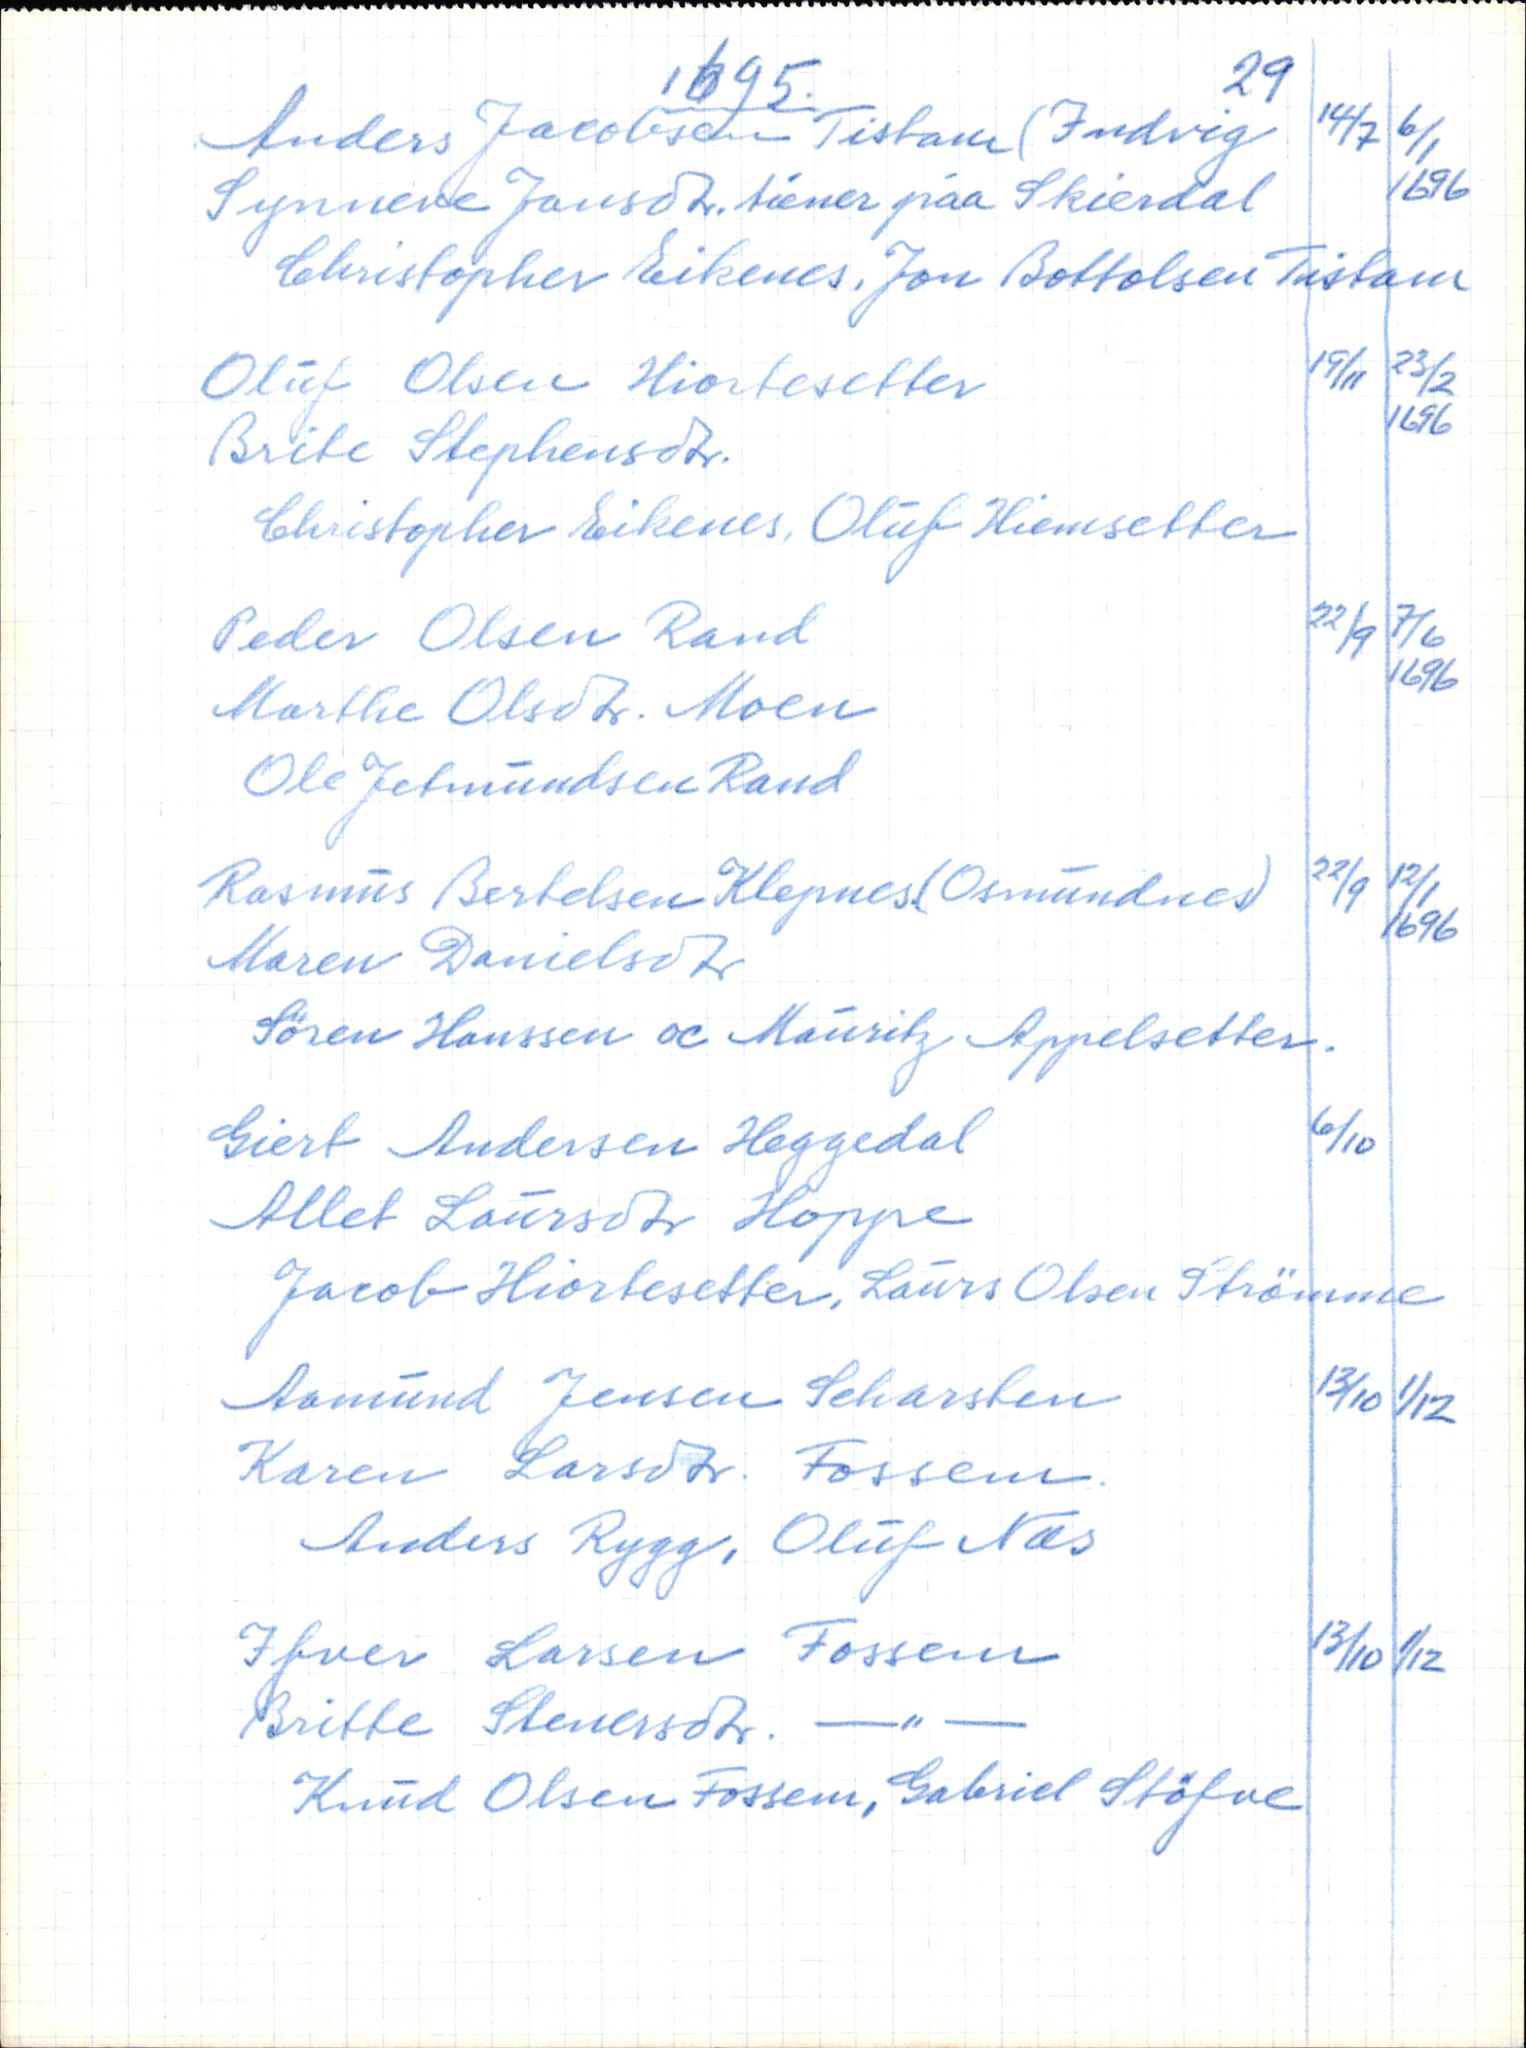 1695. 29
Anders Jacobsen Tistam (Indvig 14/7 6/1
Synneve Jonsdtr. tiener paa Skierdal 1696
Christopher Eikenes, Jon Bottolsen Tistam
Oluf Olsen Hiortesetter 19/11 23/2
1696
Brite Stephensdtr.
Christopher Eikenes, Oluf Hiemsetter
Peder Olsen Rand 22/9 7/6
1696
Marthe Olsdtr. Moen
Ole Jetmundsen Rand
Rasmus Bertelsen Klepnes (Osmundnes) 22/9 12/1
1696
Maren Danielsdtr
Sören Hanssen oc Mauritz Appelsetter.
Giert Andersen Heggedal 6/10
Allet Laursdtr Hoppe
Jacob Hiortesetter, Laurs Olsen Strömme
Aamund Jensen Scharsten 13/10 1/12
Karen Larsdtr. Fossem.
Anders Rygg, Oluf Næs
Ifver Larsen Fossem 13/10 1/12
Britte Stenersdtr. —"—
Knud Olsen Fossem, Gabriel Stöfve